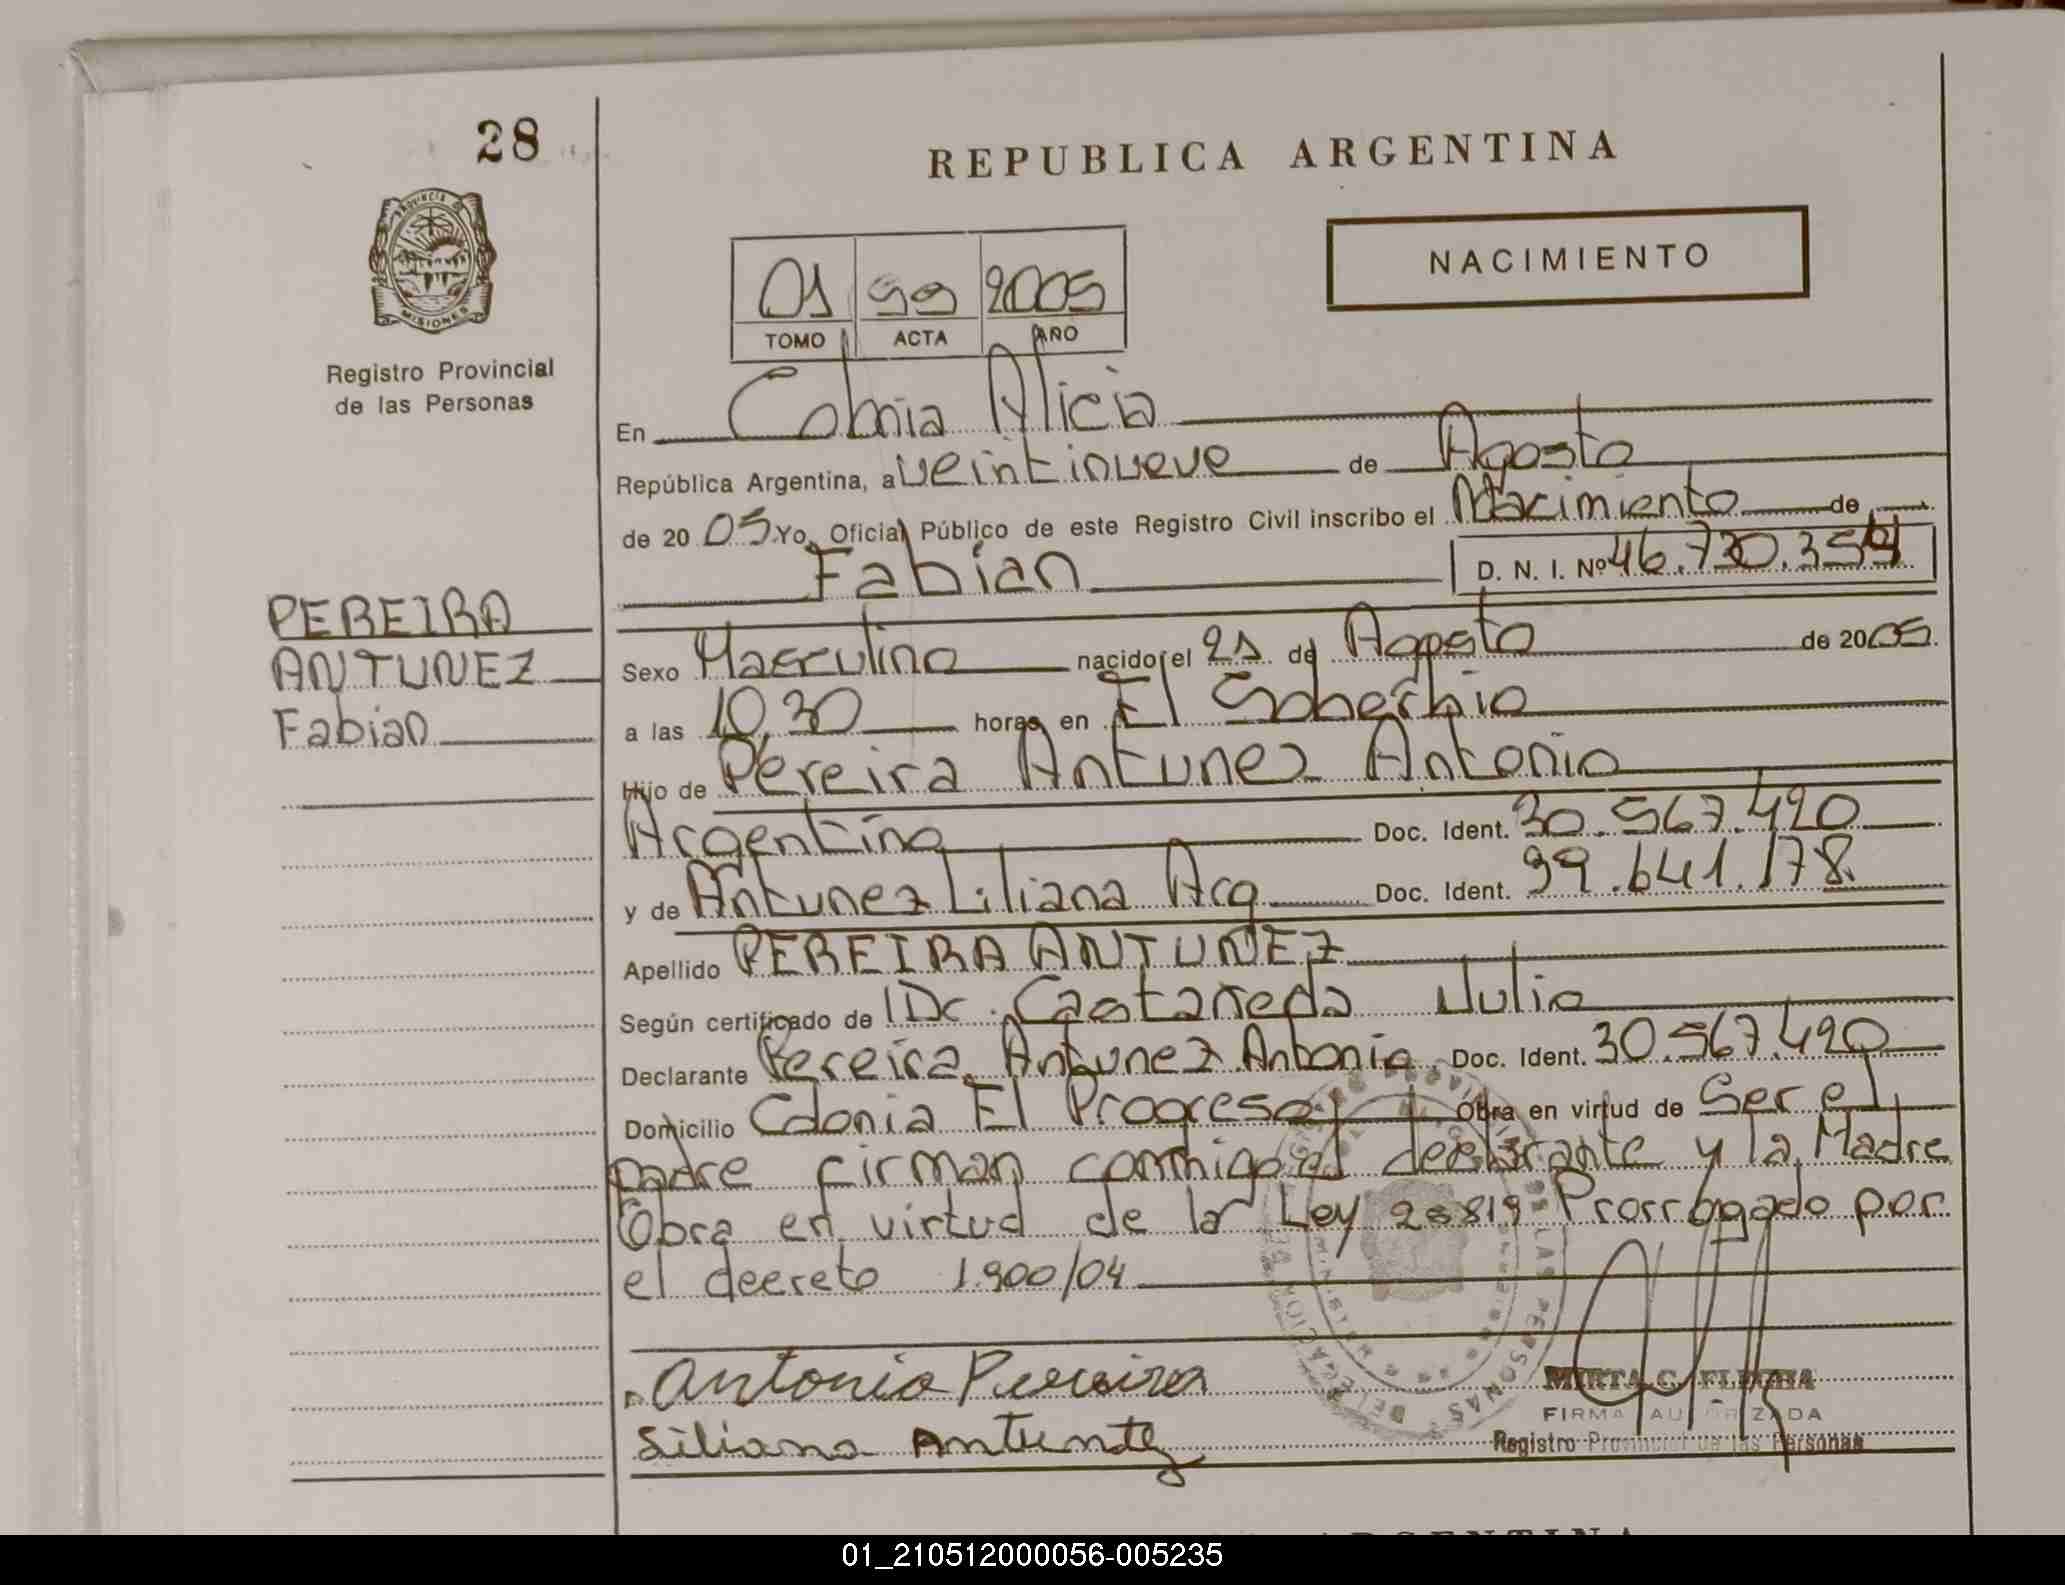 28
REPUBLICA ARGENTINA
NACIMIENTO
01 99 2005
TOMO ACTA AÑO
PROVINCIA DE
MISIONES
Registro Provincial
de las Personas
En Colonia Alicia
República Argentina, a veintinueve de Agosto
de 20 05 Yo, Oficial Público de este Registro Civil inscribo el Nacimiento de
Fabian D. N. I. Nº 46.730.354
PEREIRA
ANTUNEZ
Fabian
Sexo Masculino nacido el 21 de Agosto de 2005.
a las 10,30 horas en El Soberbio
Hijo de Pereira Antunez Antonio
Argentino Doc. Ident. 30.567.420
y de Antunez Liliana Arg Doc. Ident. 39.641.178.
Apellido PEREIRA ANTUNEZ
Según certificado de Dr. Castañeda Julio
Declarante Pereira Antunez Antonio Doc. Ident. 30.567.420
Domicilio Colonia El Progreso Obra en virtud de Ser el
padre firman conmigo el declarante y la Madre
Obra en virtud de la Ley 25819 Prorrogado por
el decreto 1.900/04
Antonio Pereira
Liliana Antunez
MIRTA C. FLECHA
FIRMA AUTORIZADA
Registro Provincial de las Personas
ARGENTINA
01_210512000056-005235